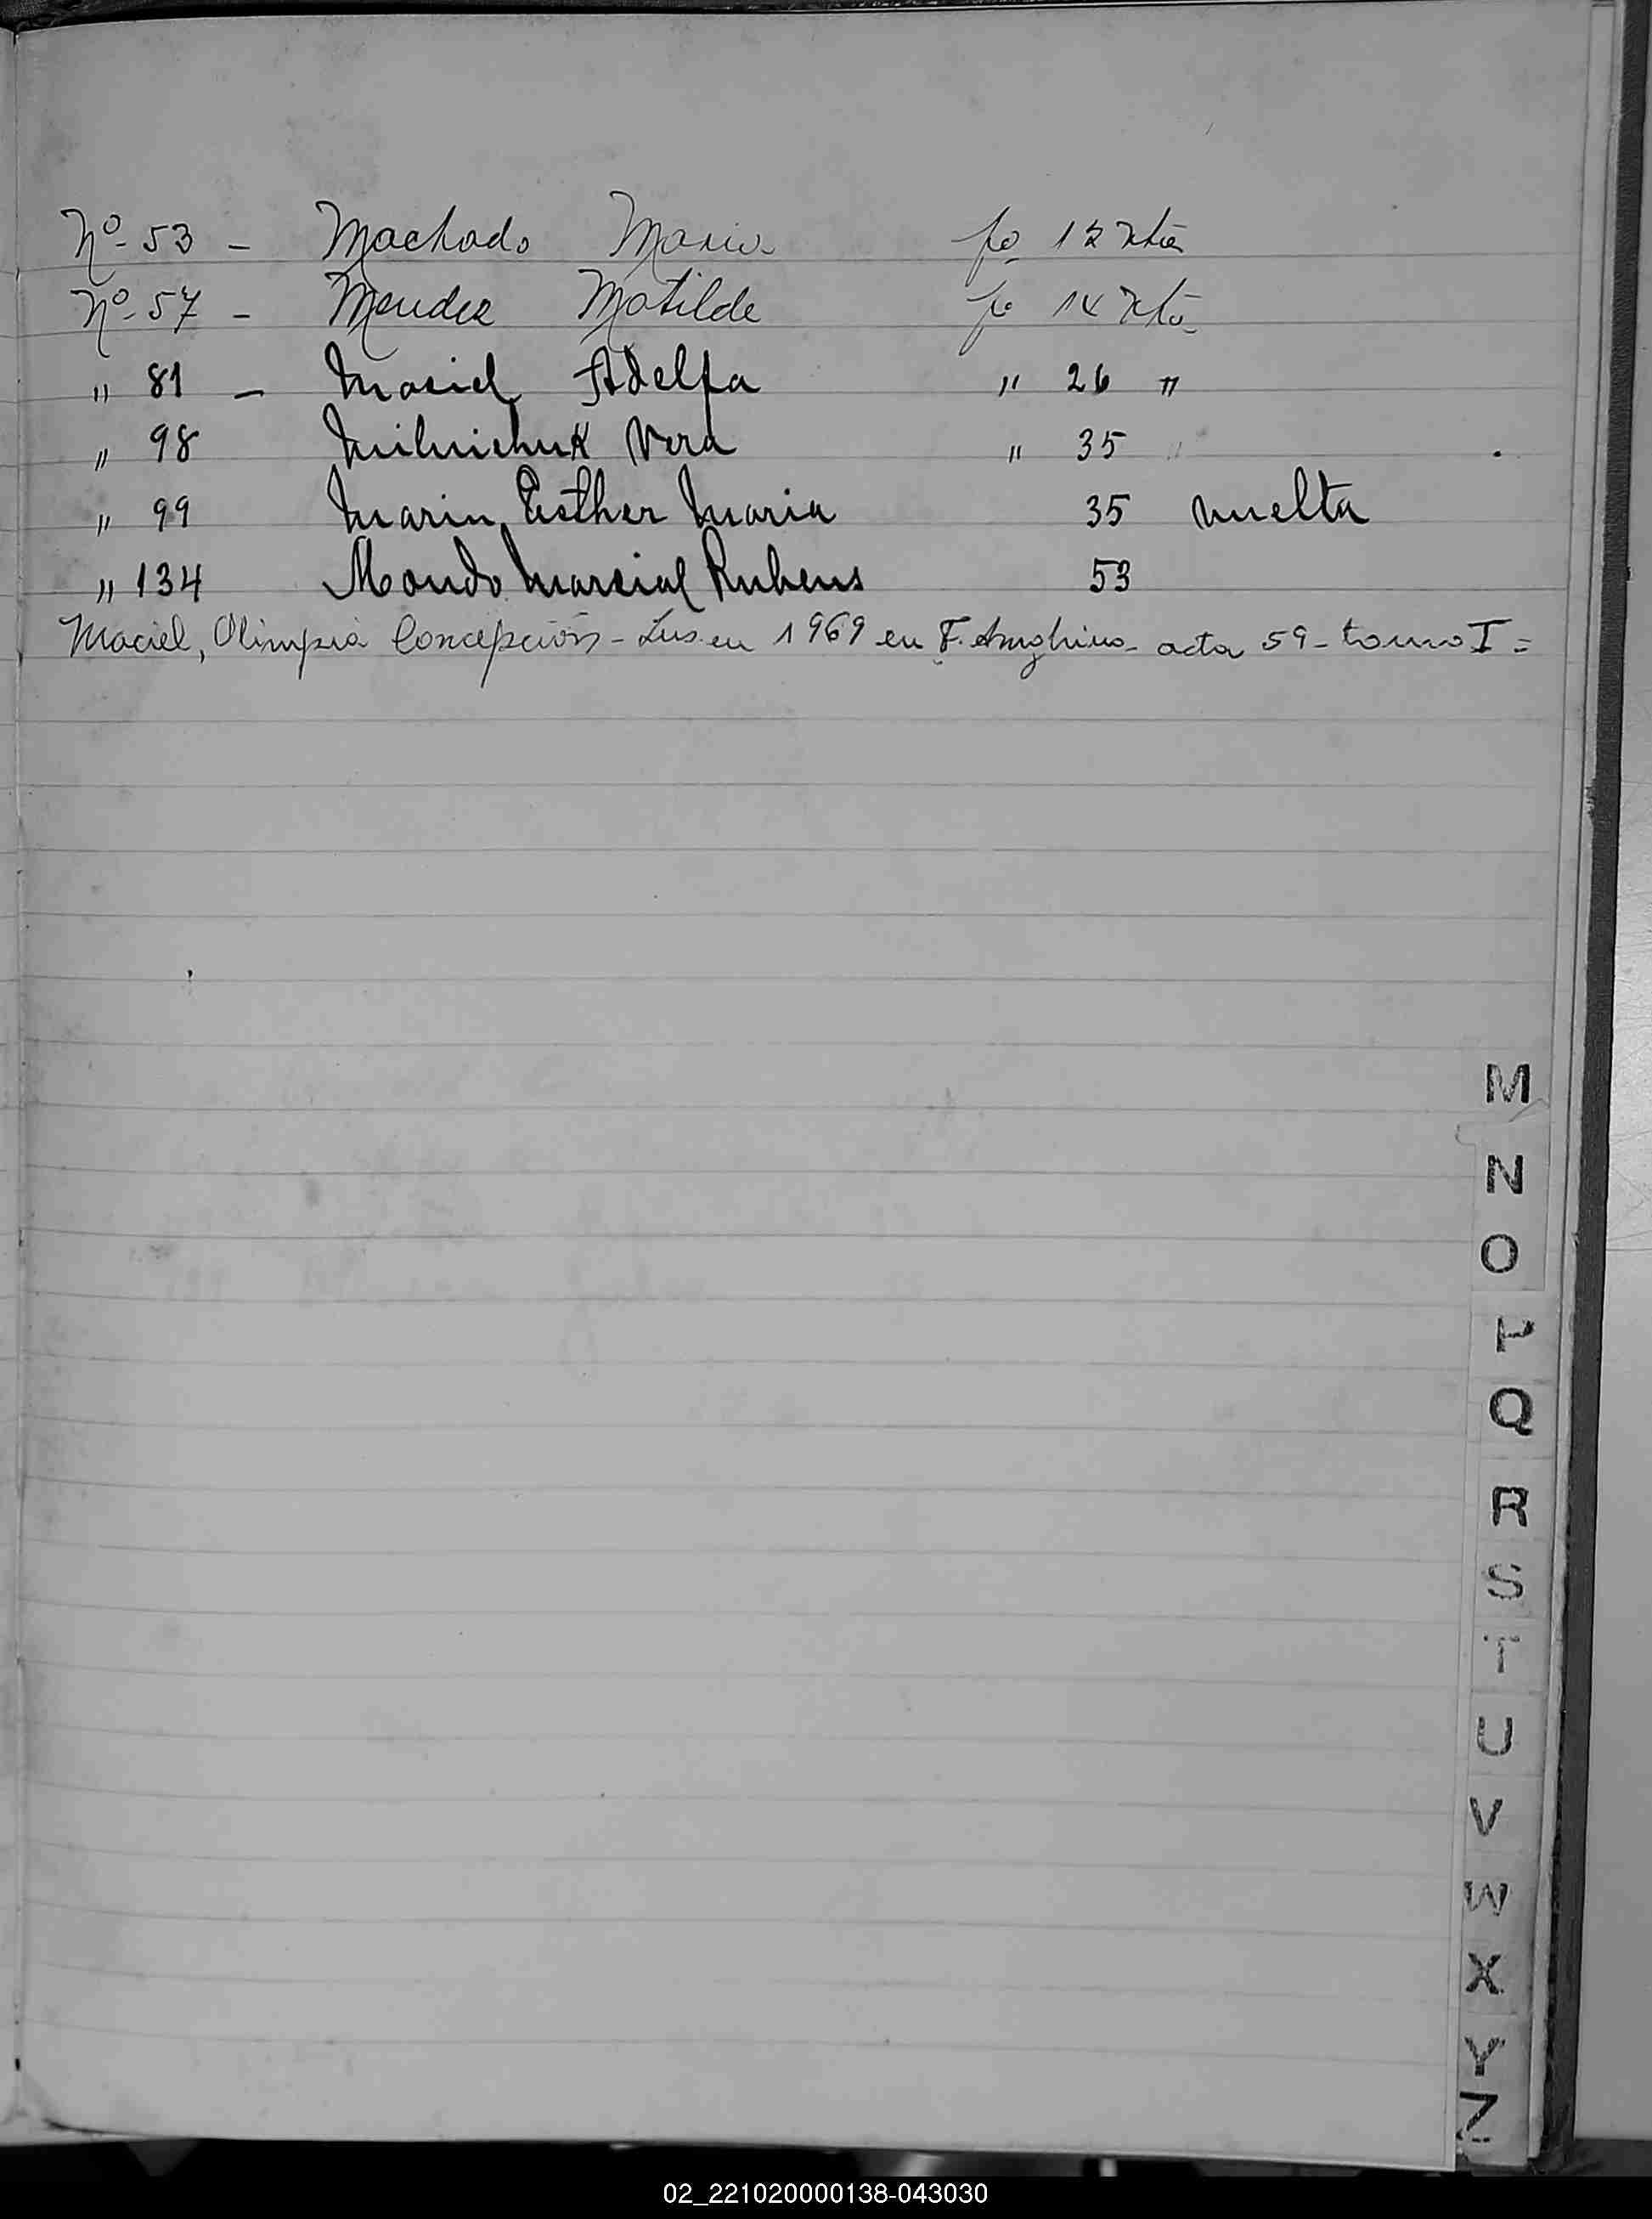 Nº 53 - Machado Maria fo 12 vta
Nº 57 - Mendez Matilde fo 14 vta
" 81 - Maciel Adelfa " 26 "
" 98 Milnichuk Vera " 35 "
" 99 Marin, Esther Maria 35 vuelta
" 134 Mondo Marcial Rubens 53
Maciel, Olimpia Concepción - Ins. en 1969 en F. Ameghino - acta 59 - tomo I =
M
N
O
P
Q
R
S
T
U
V
W
X
Y
Z
02_221020000138-043030